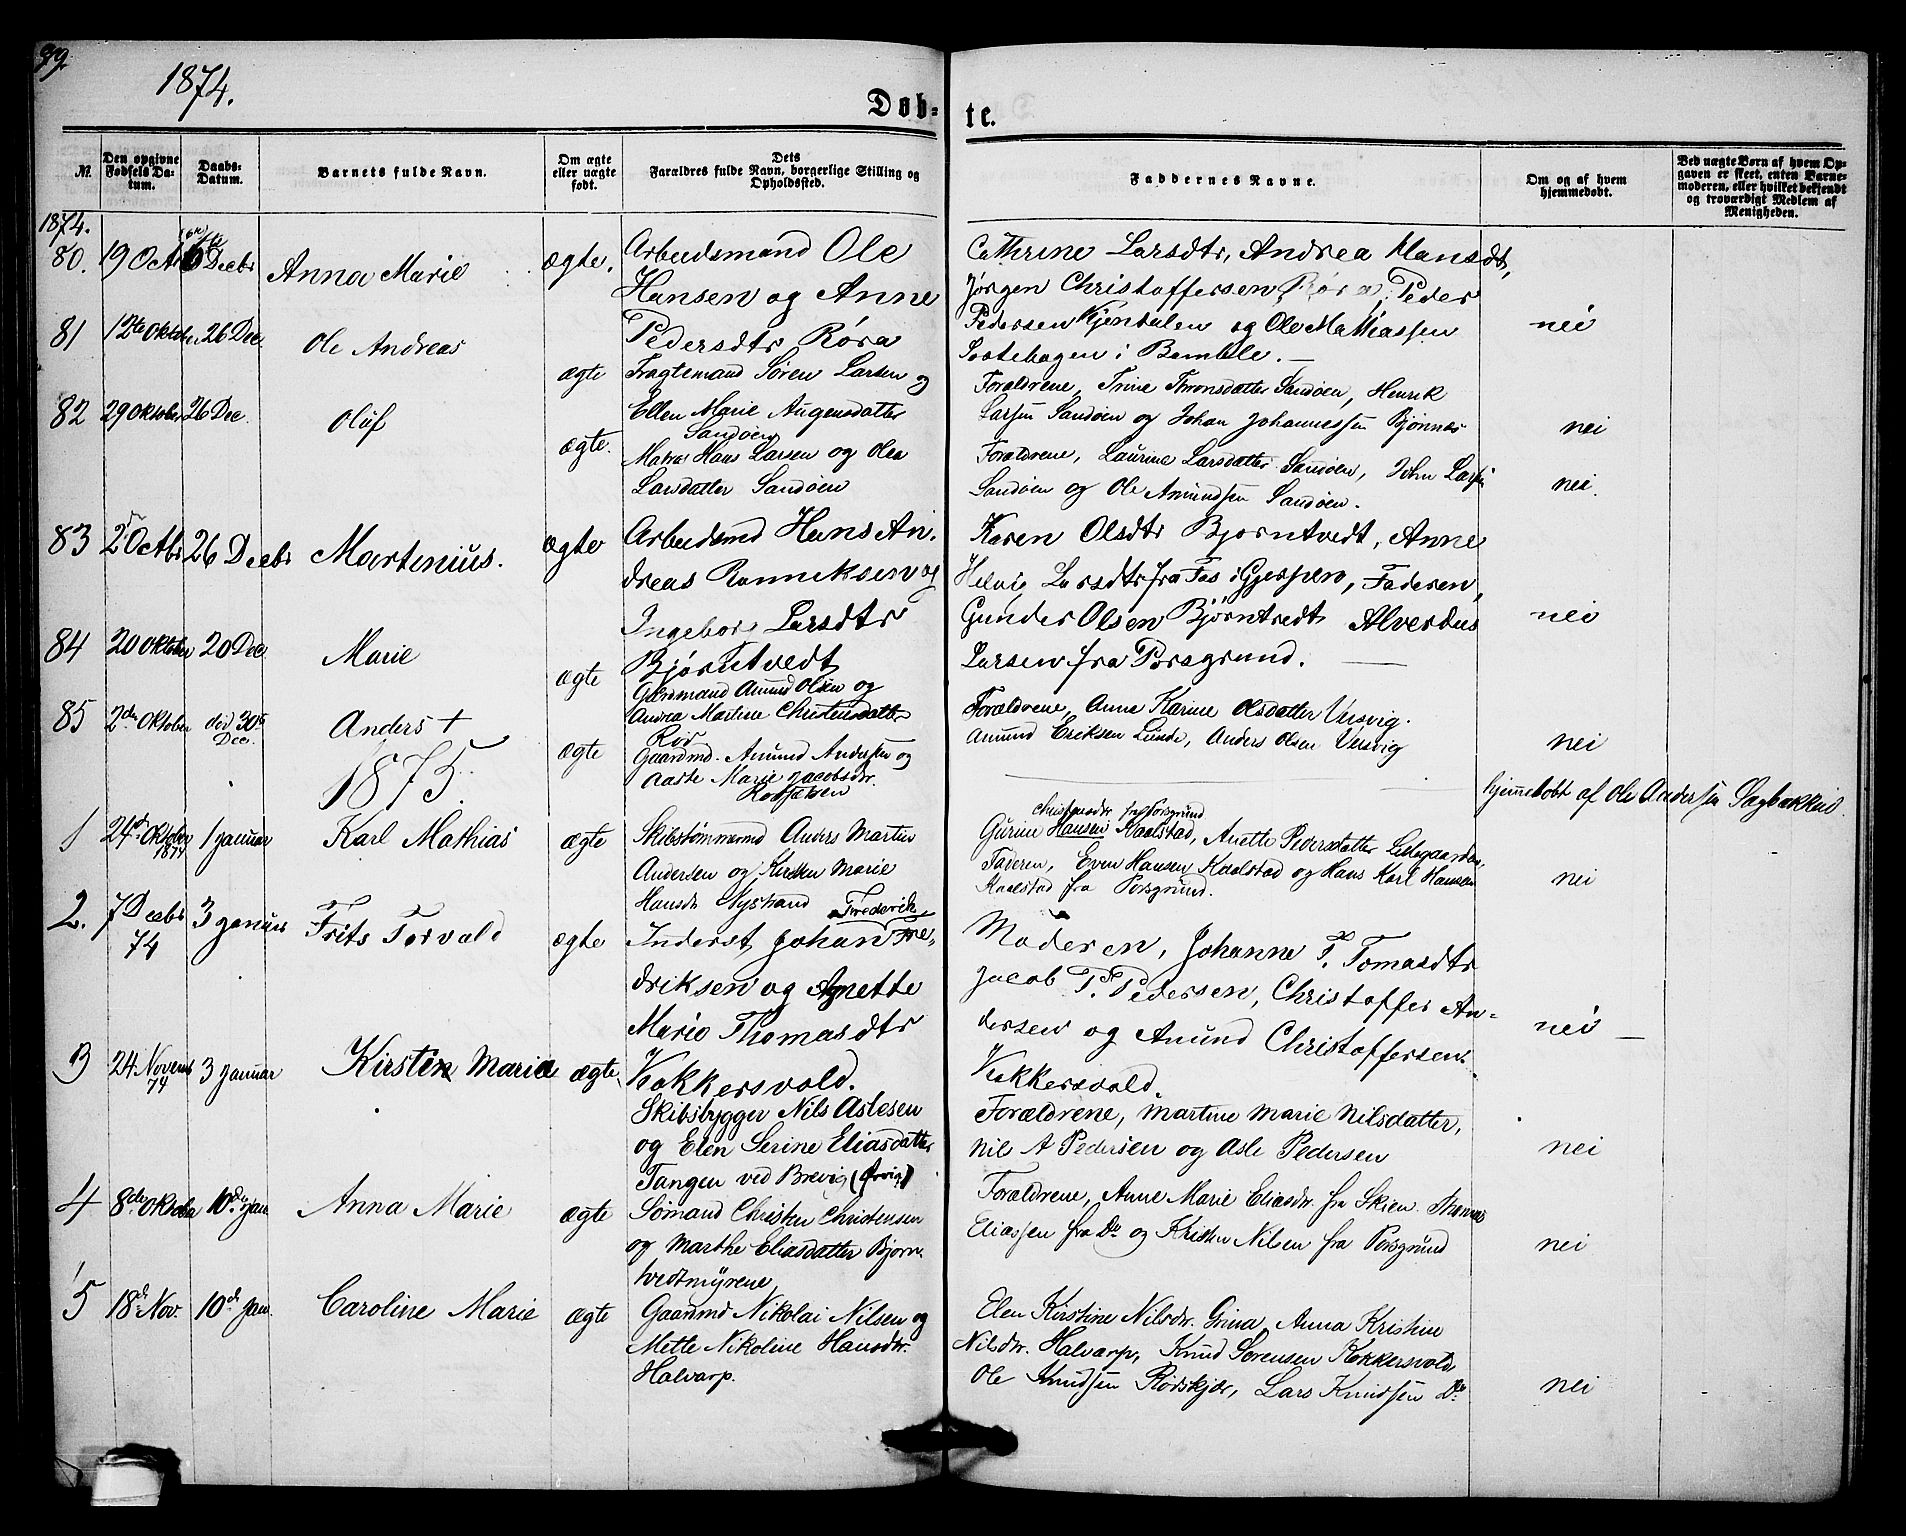 1874.
Døb- te.
№.
Den opgivne Fødsels Datum.
Daabs-Datum.
Barnets fulde Navn.
Om ægte eller uægte født.
Dets Forældres fulde Navn, borgerlige Stilling og Opholdssted.
Faddernes Navne.
Om og af hvem hjemmedøbt.
Ved uægte Børn af hvem Opgaven er skeet, enten Barnemoderen, eller hvilket bekjendt og troværdigt Medlem af Menigheden.
1874.
80. 19 Octb 6 Decbr Anna Marie ægte.
Arbeidsmand Ole
Hansen og Anne
Pedersdtr Røra
Cathrine Larsdtr, Andrea Hansdtr,
Jørgen Christoffersen Røra, Peder
Pedersen Kjendalen og Ole Mathiassen
i Bamble. —
nei
81 12te Oktober 26 Dec. Ole Andreas ægte
Fragtemand Søren Larsen og
Ellen Marie Augensdatter
Sandøen
Forældrene, Trine Thronsdatter Sandøen, Henrik
Larsen Sandøen og Johan Johannessen Bjønnes
nei
82 29 Oktober 26 Dec. Oluf ægte.
Matros Hans Larsen og Olea
Larsdatter Sandøen
Forældrene, Laurine Larsdatter Sandøen, John Larsen
Sandøen og Ole Amundsen Sandøen.
nei.
83 2 Octbr 26 Decbr Martinius. ægte
Arbeidsmd Hans An-
dreas Ranniksen og
Ingeborg Larsdtr
Bjørntvedt
Karen Olsdtr Bjørntvedt, Anne
Helvig Larsdtr fra Fos i Gjerpen, Faderen,
Gunder Olsen Bjørntvedt Alverdus
Larsen fra Porsgrund. —
nei
84 20 Oktober 20 Dec Marie ægte
Gaardmand Amund Olsen og
Andrea Martine Christensdatter
Rør
Forældrene, Anne Karine Olsdatter Versvig.
Amund Eriksen Lunde, Anders Olsen Versvig
nei
85 2den Oktober død 30te Dec. Anders + ægte
Gaardmd. Amund Andersen og
Aaste Marie Jacobsdtr.
hjemmedøbt af Ole Andersen Sagbakken
1875.
1 24de Oktober 1874 1 Januar Karl Mathias ægte
Skibstømmermd Anders Martin
Andersen og Kirsten Marie
Hansdtr Nystrand
Christensdtr fra Porsgrund
Gurine Hansen Kaalstad, Anette Pedersdatter Lillegaarden,
Faderen, Even Hansen Kaalstad og Hans Karl Hansen
Kaalstad fra Porsgrund.
nei
2. 7 Decbr 74 3 Januar Frits Torvald ægte
Frederik
Inderst Johan Fre-
driksen og Agnette
Marie Thomasdtr
Kokkersvold.
Moderen, Johanne F. Tomasdtr
Jacob T. Pedersen, Christoffer An-
dersen og Amund Christoffersen
Kokkersvold.
nei —
3 24 Novemb 74 3 Januar Kirsten Marie ægte
Skibsbygger Nils Aslesen
og Elen Serine Eliasdatter
Tangen ved Brevig (Ørvig)
Forældrene, Martine Marie Nilsdatter,
Nils A Pedersen og Asle Pedersen
nei
4 8de Oktober 10de Jan Anna Marie ægte
Sømand Christen Christensen
og Marthe Eliasdatter Bjørn-
tvedtmyrene
Forældrene, Anne Marie Eliasdr. fra Skien. Thomas
Eliassen fra Do og Kristen Nilsen fra Porsgrund
nei
5 18de Nov. 10de Jan. Caroline Marie ægte
Gaardmd Nikolai Nilsen og
Mette Nikoline Hansdtr.
Halvarp.
Elen Kirstine Nilsdr. Grina, Anna Kristine
Nilsdtr. Halvarp, Knud Sørensen Kokkersvold
Ole Knudsen Rødskjær, Lars Knudsen Do
nei